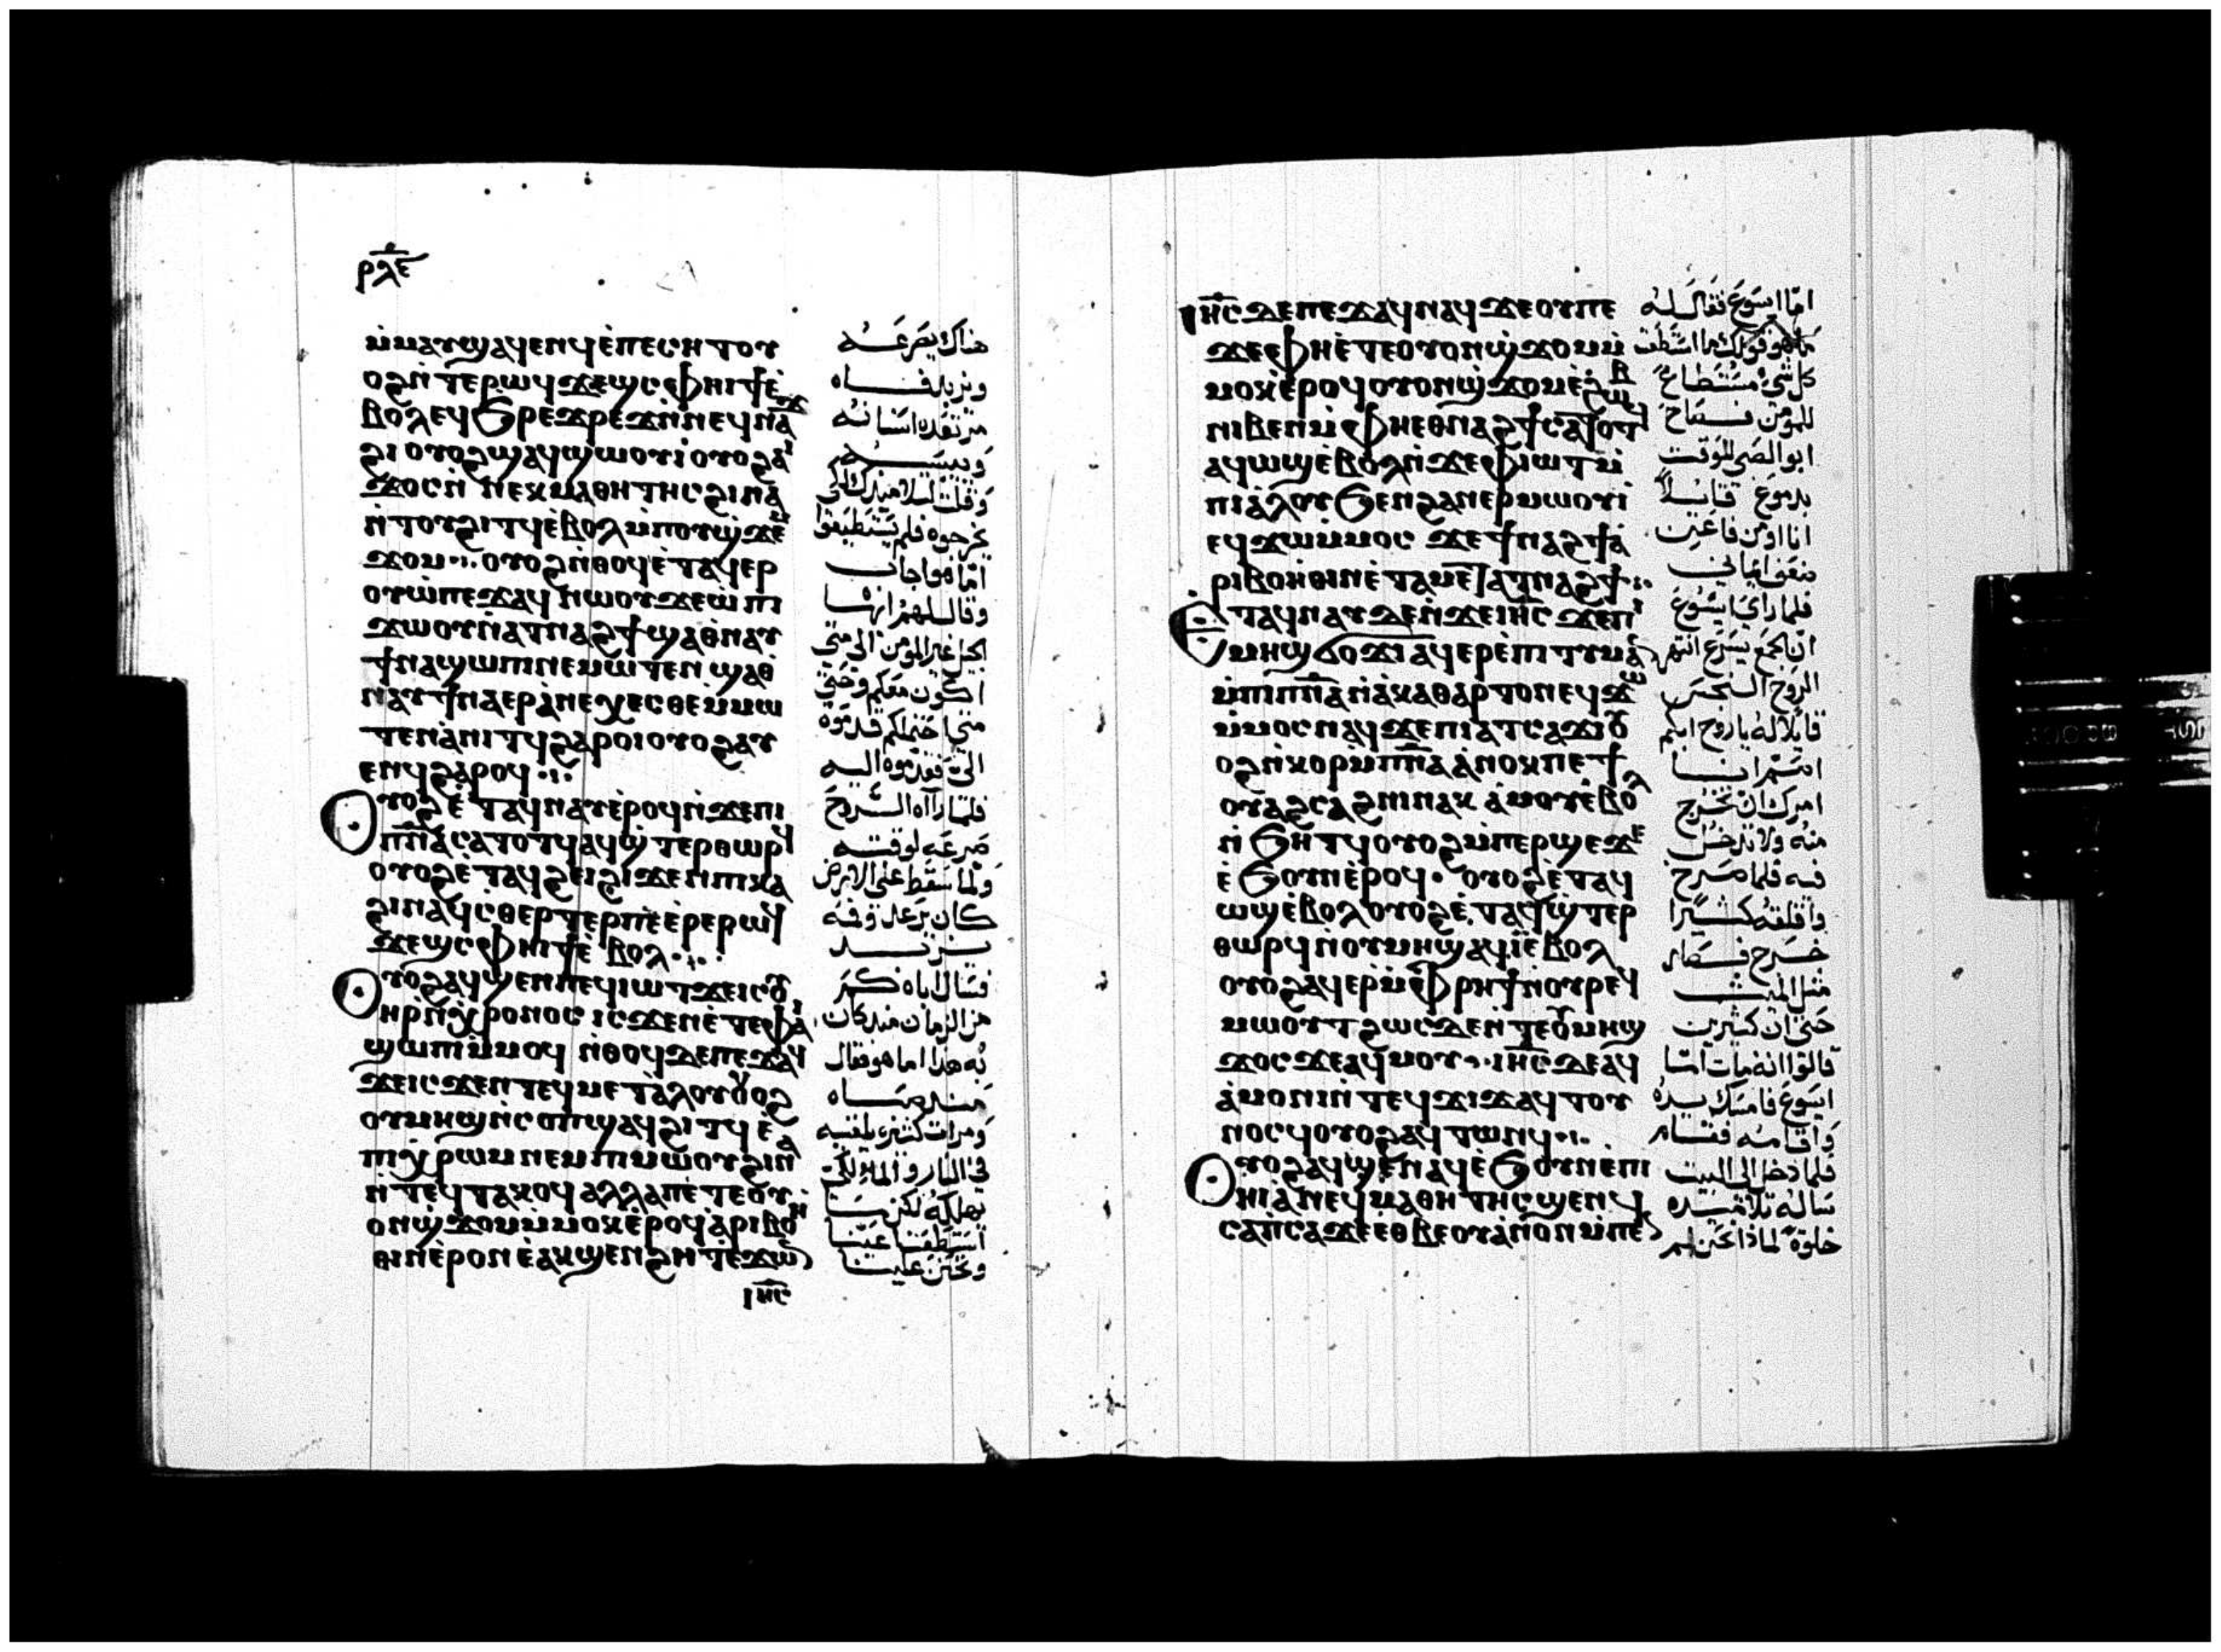 ⲣⲗⲉ
ⲙ̀ⲙⲁⲩϣⲁϥⲉⲛϥⲉ̀ⲡⲉⲥⲏⲧⲟⲩ
ⲟϩⲛ̀ⲧⲉⲣⲱϥϫⲉϣⲥⲫⲏⲓϯⲉ̀
ⲃⲟⲗⲉϥϧⲣⲉϫⲣⲉϫⲛ̀ⲛⲉϥⲛⲁϫ
ϩⲓⲟⲩⲟϩϣⲁϥϣⲱⲟⲩⲓⲟⲩⲟϩⲁⲓ
ϫⲟⲥⲛ̀ⲛⲉⲕⲙⲁⲑⲏⲧⲏⲥϩⲓⲛⲁ
ⲛ̀ⲧⲟⲩϩⲓⲧϥⲉ̀ⲃⲟⲗⲙ̀ⲡⲟⲩϣ̀ϫⲉⲙ
ϫⲟⲙ⁘ ⲟⲩⲟϩⲛ̀ⲑⲟϥⲉ̀ⲧⲁϥⲉⲣ
ⲟⲩⲱ̀ⲡⲉϫⲁϥⲛ̀ⲱⲟⲩϫⲉⲱ̀ⲡⲓ
ϫⲱⲟⲩⲛ̀ⲁⲧⲛⲁϩϯϣⲁⲑ̀ⲛⲁⲩ
ϯⲛⲁϣⲱⲡⲓⲛⲉⲙⲱⲧⲉⲛϣⲁⲑ̀
ⲛⲁⲩϯⲛⲁⲉⲣⲁ̀ⲛⲉⲭⲉⲥⲑⲉⲙ̀ⲙⲱ
ⲧⲉⲛⲁ̀ⲛⲓⲧϥϩⲁⲣⲟⲓⲟⲩⲟϩⲁⲩ
ⲉⲛϥϩⲁⲣⲟϥ⁘
ⲟⲩⲟϩⲉ̀ⲧⲁϥⲛⲁⲩⲉ̀ⲣⲟϥⲛ̀ϫⲉⲡⲓ
ⲡⲛⲁⲥⲁⲧⲟⲧϥⲁϥϣ̀ⲧⲉⲣⲑⲱⲣϥ
ⲟⲩⲟϩⲉ̀ⲧⲁϥϩⲉⲓϩⲓϫⲉⲛⲡⲓⲕⲁ
ϩⲓⲛⲁϥⲥ̀ⲑⲉⲣⲧⲉⲣⲡⲉⲉ̀ⲣⲉⲣⲱϥ
ϫⲉϣⲥⲫⲏⲓϯⲉ̀ⲃⲟⲗ⁘
ⲟⲩⲟϩⲁϥϣⲉⲛⲡⲉϥⲓⲱⲧϫⲉⲓⲥⲟⲩ
ⲏⲣⲛ̀ⲭⲣⲟⲛⲟⲥⲓⲥϫⲉⲛⲉ̀ⲧⲉⲫⲁⲓ
ϣⲱⲡⲓⲙ̀ⲙⲟϥⲛ̀ⲑⲟϥⲇⲉⲡⲉϫⲁϥ
ϫⲉⲓⲥϫⲉⲛⲧⲉϥⲙⲉⲧⲁ̀ⲗⲟⲩⲟⲩⲟϩ
ⲟⲩⲙⲏϣⲛ̀ⲥⲟⲡϣⲁϥϩⲓⲧϥⲉ̀
ⲡⲓⲭⲣⲱⲙⲛⲉⲙⲡⲓⲙⲱⲟⲩϩⲓⲛⲁ
ⲛ̀ⲧⲉϥⲧⲁⲕⲟϥⲁⲗⲗⲁⲡⲉ̀ⲧⲉⲟⲩ
ⲟⲛϣ̀ϫⲟⲙⲙ̀ⲙⲟⲕⲉ̀ⲣⲟϥⲁ̀ⲣⲓⲃⲟⲏ
ⲑⲓⲛⲉ̀ⲣⲟⲛⲉ̀ⲁⲕϣⲉⲛϩⲏⲧⲉ̀ϫⲱ
ⲓⲏⲥ
هناك يصرعه
ويزبد فاه
وقال لهم ايها
الجيل غير المومن الى متى
اكون معكم وحتى
فلما رآه الروح
صرعه لوقته
ولما سقط على الارض
كان يرعد وفمه
يزبد
فسال اباه كم
من الزمان منذ كان
به هذا اما هو فقال
منذ صباه
ومرات كثيره يلقيه
في النار والماء لكي
يهلكه لكن ما
استطعت اعينا
وتحنن علينا
ⲓⲏⲥⲇⲉⲡⲉϫⲁϥⲛⲁϥϫⲉⲟⲩⲡⲉ
ϫⲉⲫⲏⲉ̀ⲧⲉⲟⲩⲟⲛϣ̀ϫⲟⲙⲙ̀
ⲙⲟⲕⲉ̀ⲣⲟϥⲟⲩⲟⲛϣ̀ϫⲟⲙⲉ̀ϩⲱⲃ
ⲛⲓⲃⲉⲛⲙ̀ⲫⲏⲉⲑⲛⲁϩϯⲥⲁⲧⲟⲧϥ
ⲁϥⲱϣⲉ̀ⲃⲟⲗⲛ̀ϫⲉⲫⲓⲱⲧⲙ̀
ⲡⲓⲁ̀ⲗⲟⲩϧⲉⲛϩⲁⲛⲉⲣⲙⲱⲟⲩⲓ
ⲉϥϫⲱⲙ̀ⲙⲟⲥϫⲉϯⲛⲁϩϯⲁ̀
ⲣⲓⲃⲟⲏ̀ⲑⲓⲛⲉ̀ⲧⲁⲙⲉⲧⲁⲧⲛⲁϩϯ⁘
ⲉⲧⲁϥⲛⲁⲩⲇⲉⲛ̀ϫⲉⲓⲏⲥϫⲉⲡⲓ
ⲙⲏϣϭⲟϫⲓⲁϥⲉⲣⲉ̀ⲡⲓⲧⲓⲙⲁⲛ
ⲙ̀ⲡⲓⲡⲛⲁⲛ̀ⲁ̀ⲕⲁⲑⲁⲣⲧⲟⲛⲉϥϫⲱ
ⲙ̀ⲙⲟⲥⲛⲁϥϫⲉⲡⲓⲁⲧⲥⲁϫⲓⲟⲩ
ⲟϩⲛ̀ⲕⲟⲩⲣⲙ̀ⲡⲛⲁⲁ̀ⲛⲟⲕⲡⲉϯ
ⲟⲩⲁϩⲥⲁϩⲛⲓⲛⲁⲕⲁ̀ⲙⲟⲩⲉ̀ⲃⲟⲗ
ⲛ̀ϧⲏⲧϥⲟⲩⲟϩⲙ̀ⲡⲉⲣϣⲉϫⲉ
ⲉ̀ϧⲟⲩⲛⲉ̀ⲣⲟϥ· ⲟⲩⲟϩⲉ̀ⲧⲁϥ
ⲱϣⲉ̀ⲃⲟⲗⲟⲩⲟϩⲉ̀ⲧⲁϥϣ̀ⲧⲉⲣ
ⲑⲱⲣϥⲛ̀ⲟⲩⲙⲏϣⲁϥⲓ̀ⲉ̀ⲃⲟⲗ
ⲟⲩⲟϩⲁϥⲉⲣⲙ̀ⲫⲣⲏϯⲛ̀ⲟⲩⲣⲉϥ
ⲙⲱⲟⲩⲧϩⲱⲥⲇⲉⲛ̀ⲧⲉⲟⲩⲙⲏϣ
ϫⲟⲥϫⲉⲁϥⲙⲟⲩ⁘ ⲓⲏⲥⲇⲉⲁϥ
ⲁ̀ⲙⲟⲛⲓⲛ̀ⲧⲉϥϫⲓϫⲁϥⲧⲟⲩ
ⲛⲟⲥϥⲟⲩⲟϩⲁϥⲧⲱⲛϥ⁘
ⲟⲩⲟϩⲁϥϣⲉⲛⲁϥⲉ̀ϧⲟⲩⲛⲉ̀ⲡⲓ
ⲏⲓⲁ̀ⲛⲉϥⲙⲁⲑⲏⲧⲏⲥϣⲉⲛϥ
ⲥⲁⲡ̀ⲥⲁϫⲉⲉⲑⲃⲉⲟⲩⲁ̀ⲛⲟⲛⲙ̀ⲡⲉ
اما ايسوع فقال له
ما هو قولك ما استطعت
كل شي مستطاع
للمومن فصاح
ابو الصبي للوقت
بدموع قايلا
انا اومن فاعن
ضعف ايماني
فلما راى ايسوع
ان الجمع يسرع انتهر
الروح النجس
امرك ان تخرج
منه ولا تدخل
فيه فلما صرخ
واقلقه كثيرا
خرج فصار
مثل الميت
حتى ان كثيرين
قالوا انه مات اما
ايسوع فامسك يده
واقامه فقام
فلما دخل الى البيت
ساله تلاميذه
خلوة لماذا نحن لم